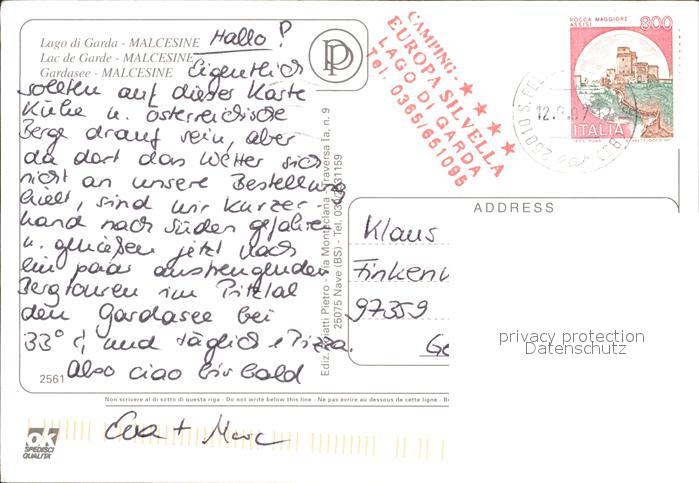 Lago di Garda - MALCESINE
Lac de Garde - MALCESINE
Gardasee - MALCESINE
Hallo!
Eigentlich
sollten auf dieser Karte
Kühe u. österreichische
Berge drauf sein, aber
da dort das Wetter sich
nicht an unsere Bestellung
hielt, sind wir kurzer-
hand nach Süden gefahren
u. genießen jetzt nach
ein paar anstrengenden
Bergtouren im Pitztal
den Gardasee bei
33° C, und täglich Pizza.
Also ciao bis bald
Eva + Marc
2561
OK
SPEDISCI
QUALITÀ
Non scrivere al di sotto di questa riga - Do not write below this line - Ne pas ecrire au dessous de cette ligne -
Pietro - Via Monteclana - Traversa Ia, n. 9
25075 Nave (BS) - Tel.
CAMPING
EUROPA SILVELLA
LAGO DI GARDA
Tel. 0365/651095
ROCCA MAGGIORE
ASSISI
800
ITALIA
ADDRESS
Klaus
97359
privacy protection
Datenschutz